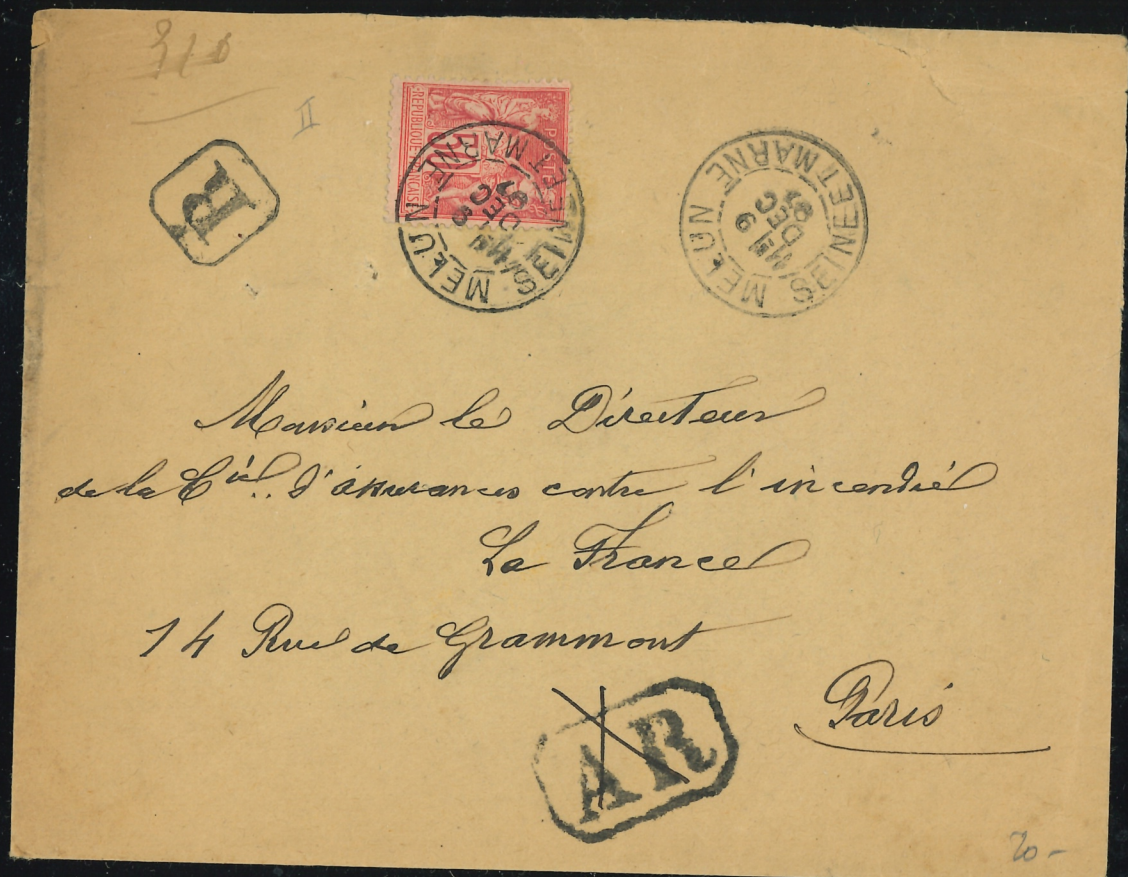 II
R
REPUBLIQUE FRANÇAISE
POSTES
50
MELUN
SEINE ET MARNE
9
DEC
97
MELUN
SEINE ET MARNE
9
DEC
97
Monsieur le Directeur
de la Cie. d'assurances contre l'incendie
La France
14 Rue de Grammont
Paris
AR
20-